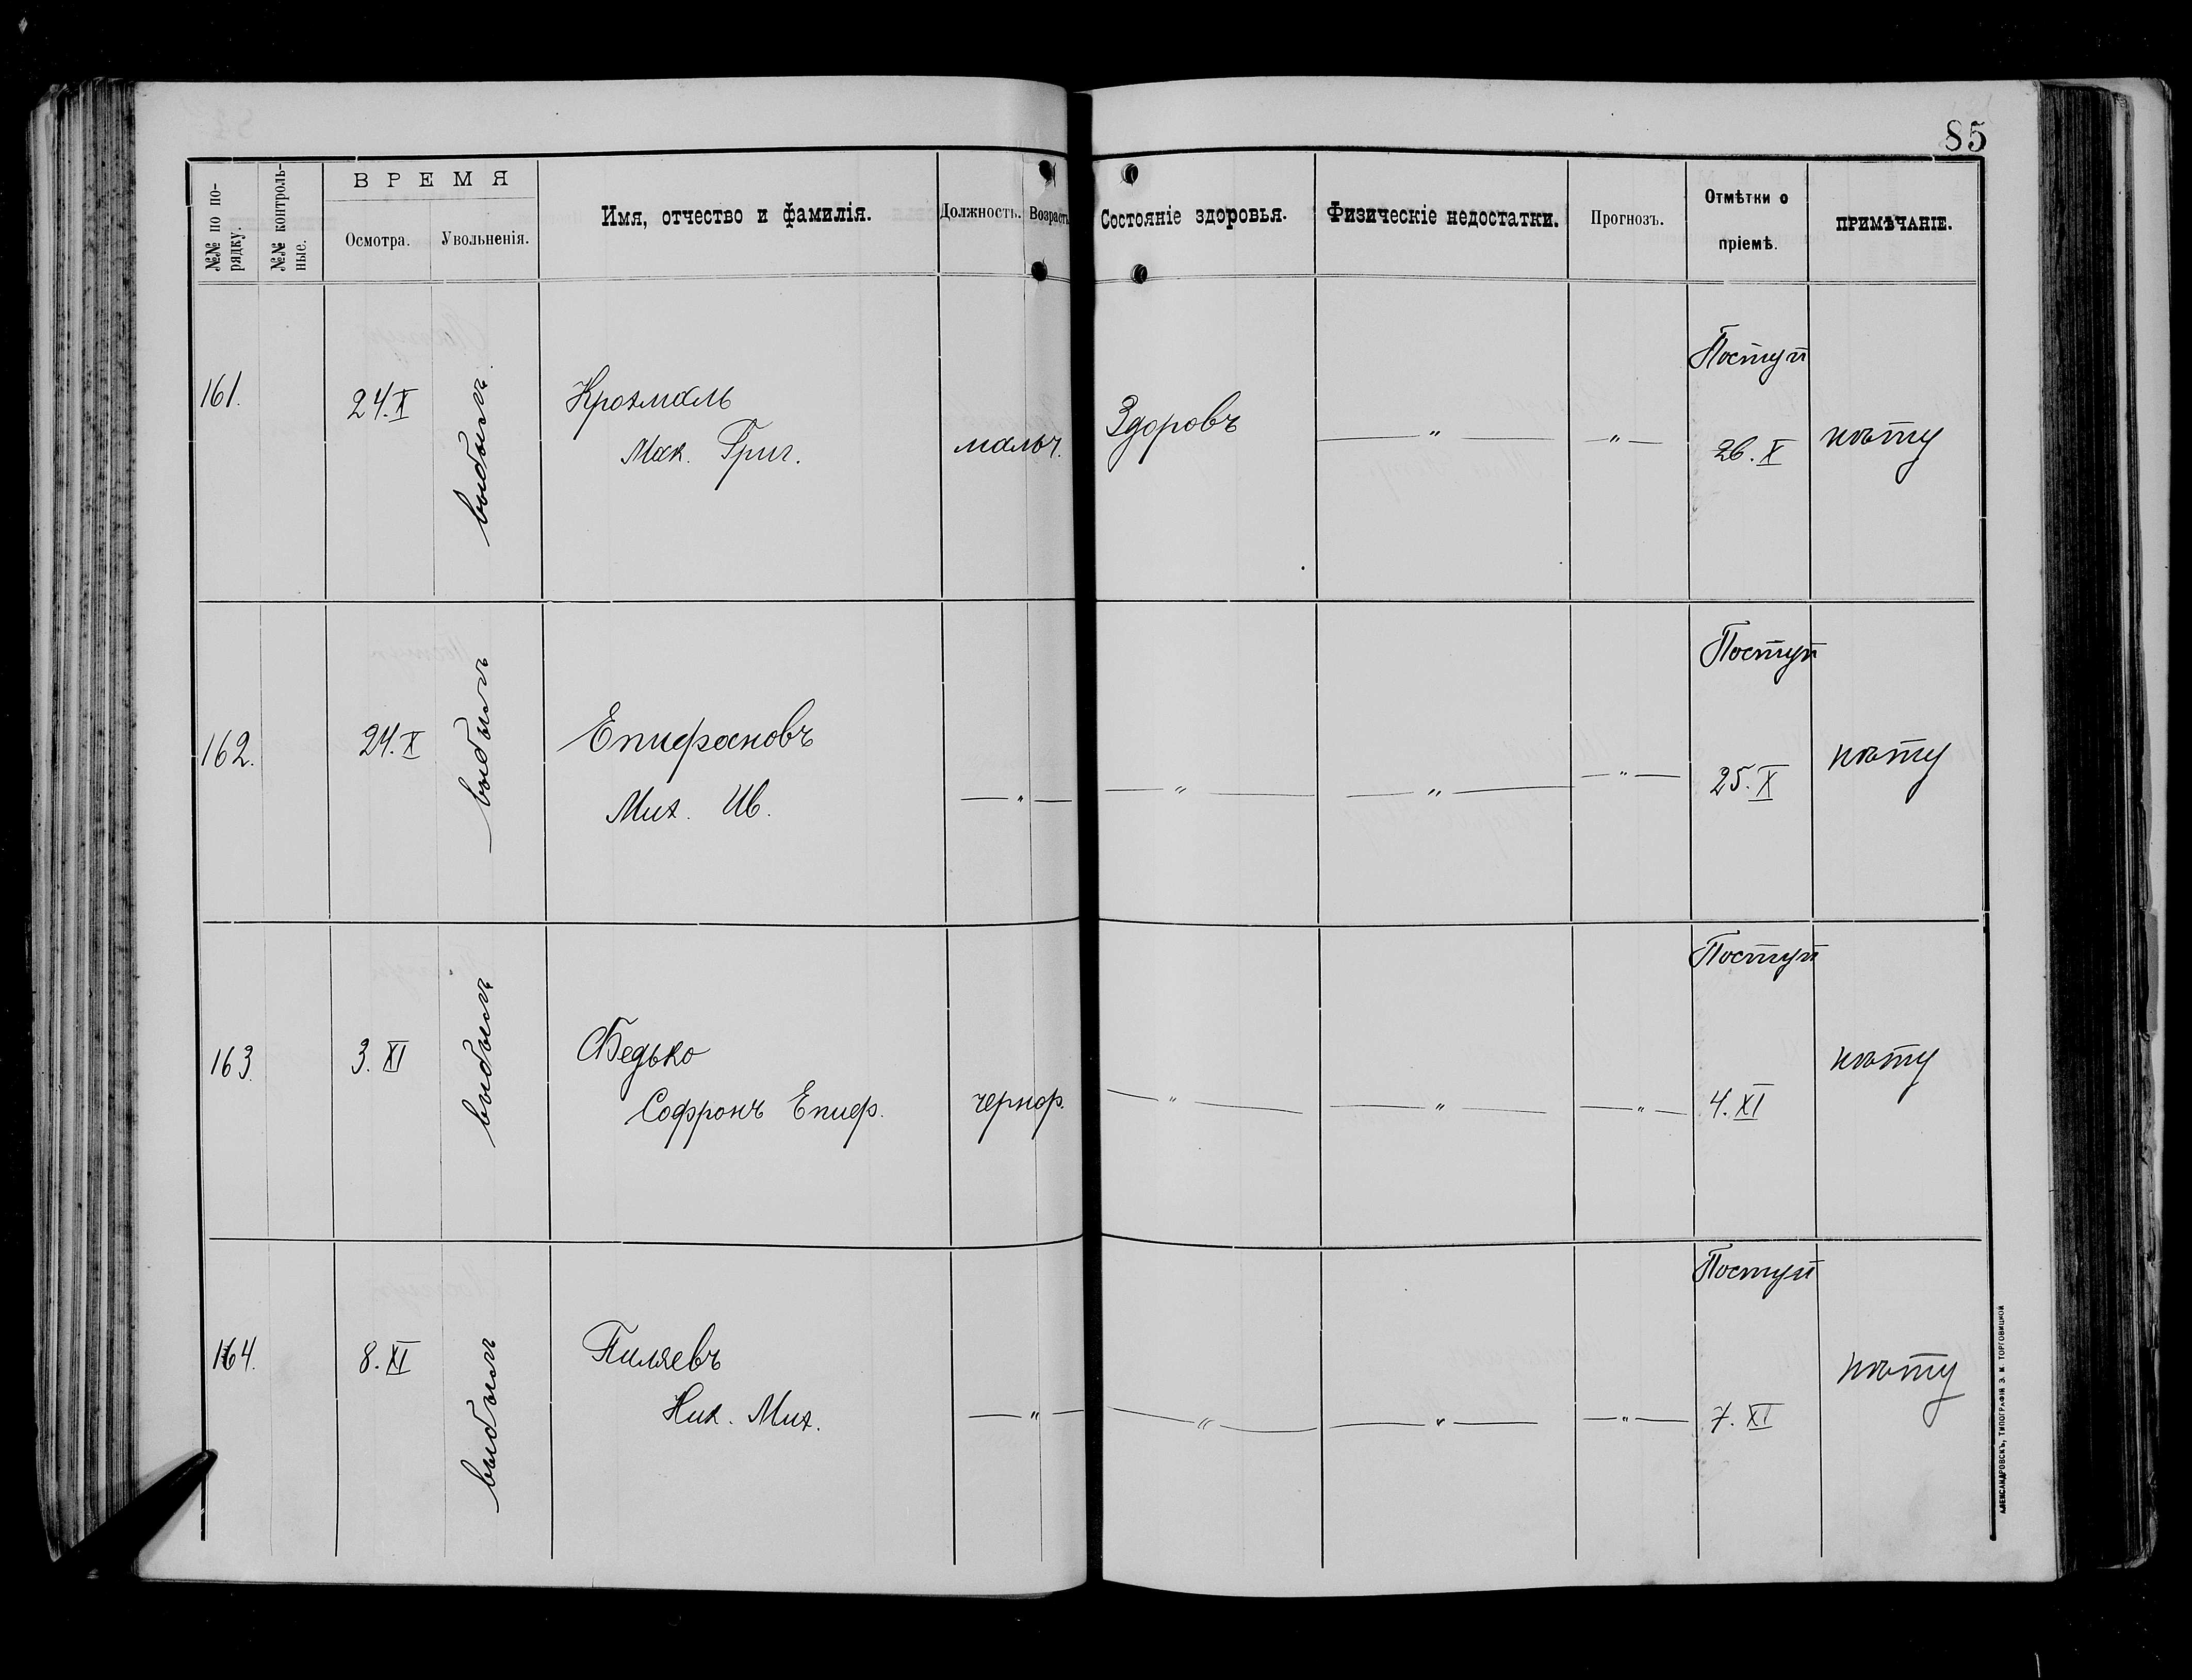 85
№№ по по-
рядку.
№№ контроль-
ные.
ВРЕМЯ
Осмотра.
Увольненія.
Имя, отчество и фамилія.
Должность.
Возрастъ
Состояніе здоровья.
Физическіе недостатки.
Прогнозъ.
Отмѣтки о
пріемѣ.
ПРИМѢЧАНІЕ.
161.
24.X
выбылъ
Крохмаль
Мак. Григ.
мальч.
Здоровъ
— " —
— " —
Поступ
26.X
нѣту
162.
24.X
выбылъ
Епифановъ
Мих. Ив.
— " —
— " —
— " —
— " —
Поступ
25.X
нѣту
163.
3.XI
выбылъ
Бедько
Софронъ Епиф.
чернор.
— " —
— " —
— " —
Поступ
4.XI
нѣту
164.
8.XI
выбылъ
Пиляевъ
Ник. Мих.
— " —
— " —
— " —
— " —
Поступ
7.XI
нѣту
АЛЕКСАНДРОВСКЪ, ТИПОГРАФІЯ Э. М. ТОРГОВИЦКОЙ